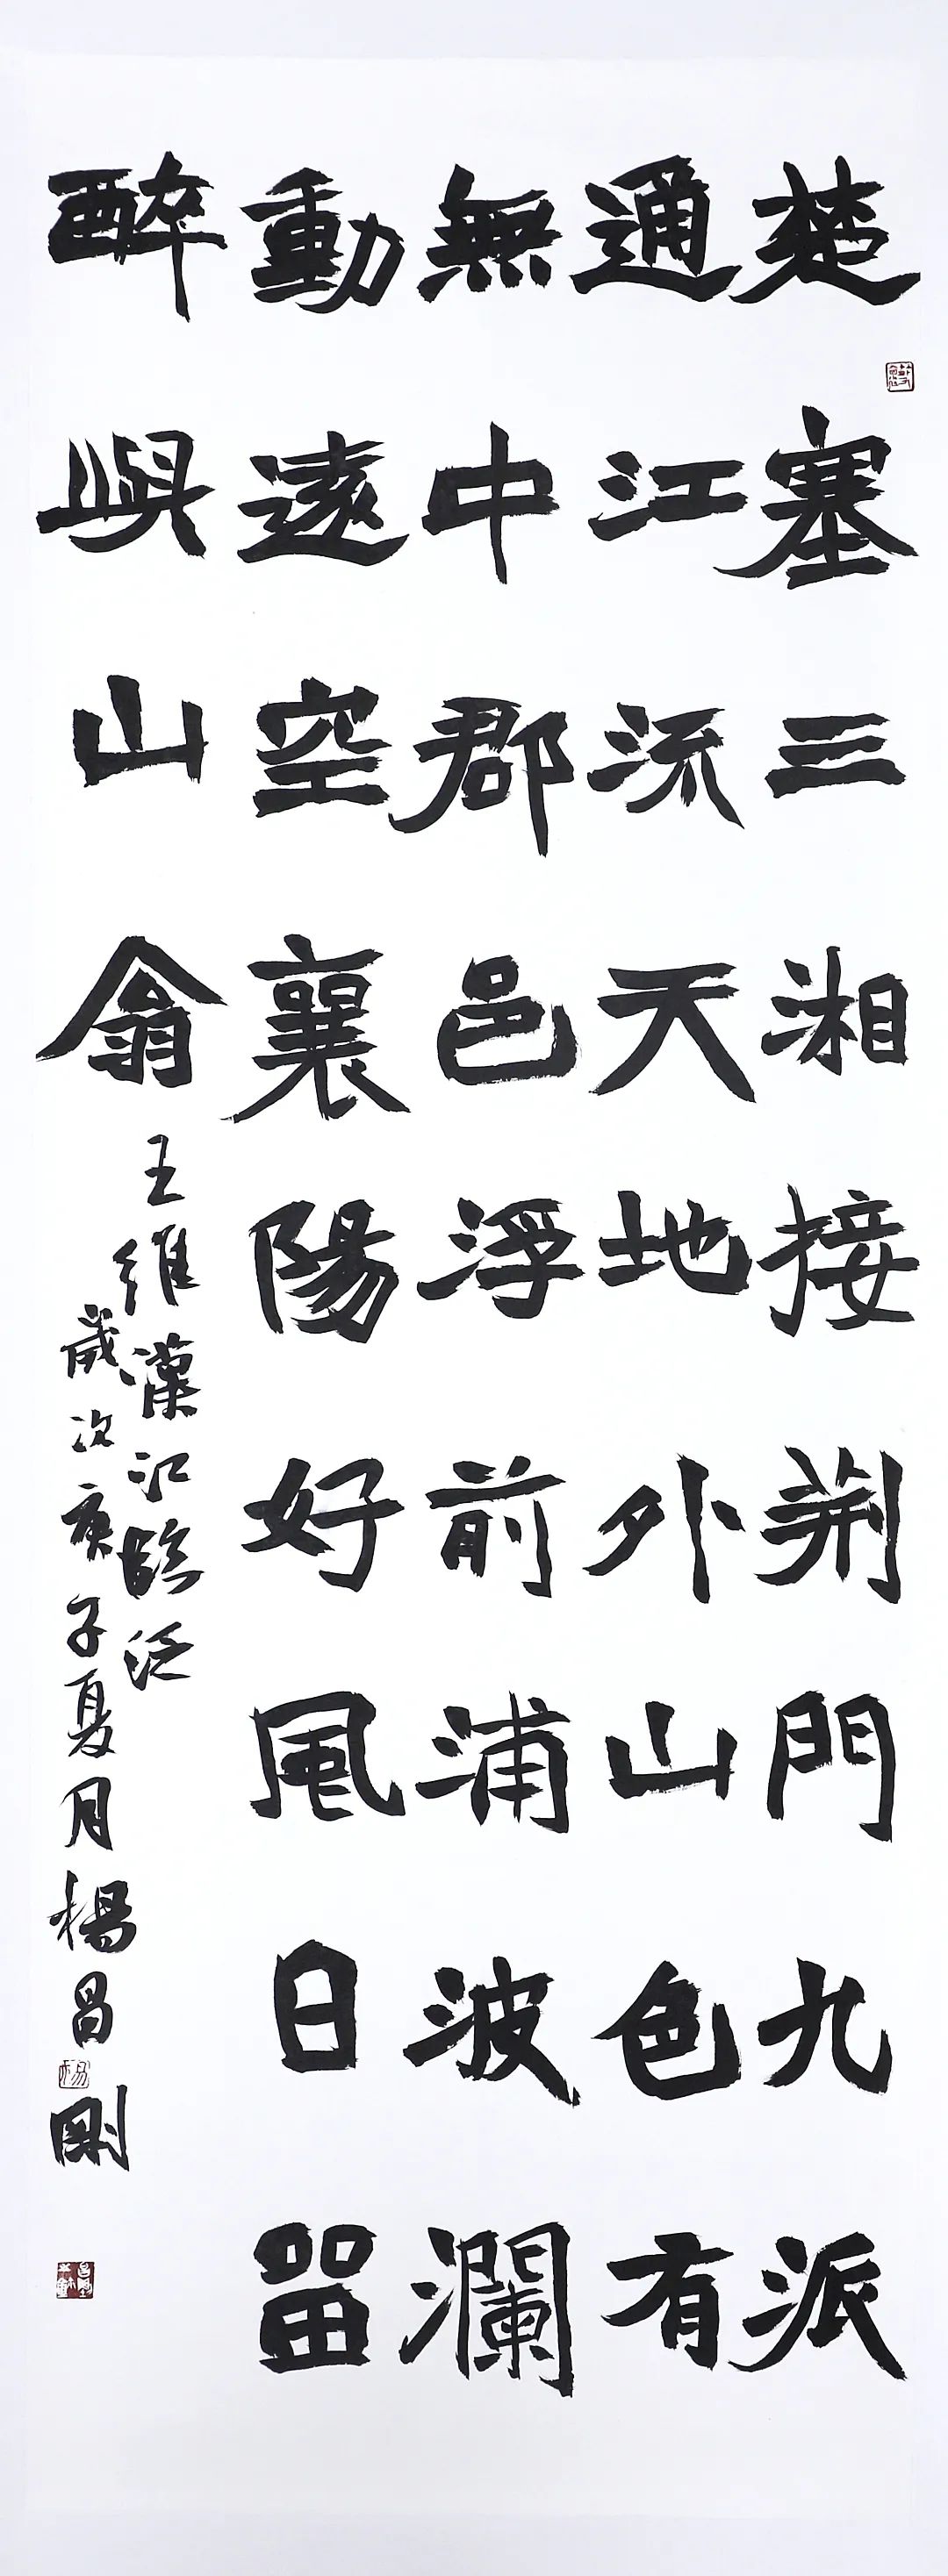 楚塞三湘接荆門九派
通江流天地外山色有
無中郡邑浮前浦波瀾
動遠空襄陽好風日留
醉與山翁
王維漢江臨泛
歲次庚子夏月楊昌剛